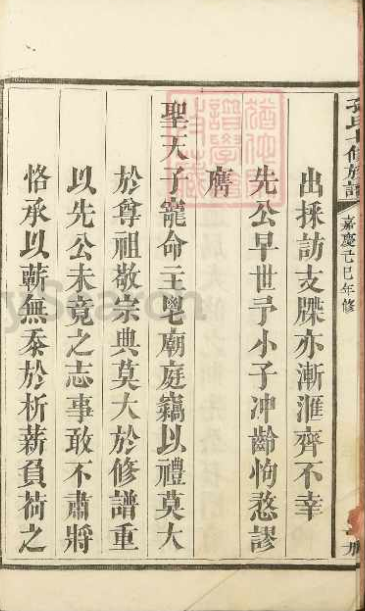 孫氏十修族譜
嘉慶己巳年修
出採訪支牒亦漸滙齊不幸
先公早世予小子冲齡恂愁謬
膺
聖天子寵命主鬯廟庭竊以禮莫大
於尊祖敬宗典莫大於修譜重
以先公未竟之志事敢不肅將
恪承以蘄無忝於析薪負荷之